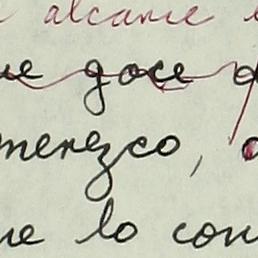 alcance
ue goce
merezco,
ue lo con